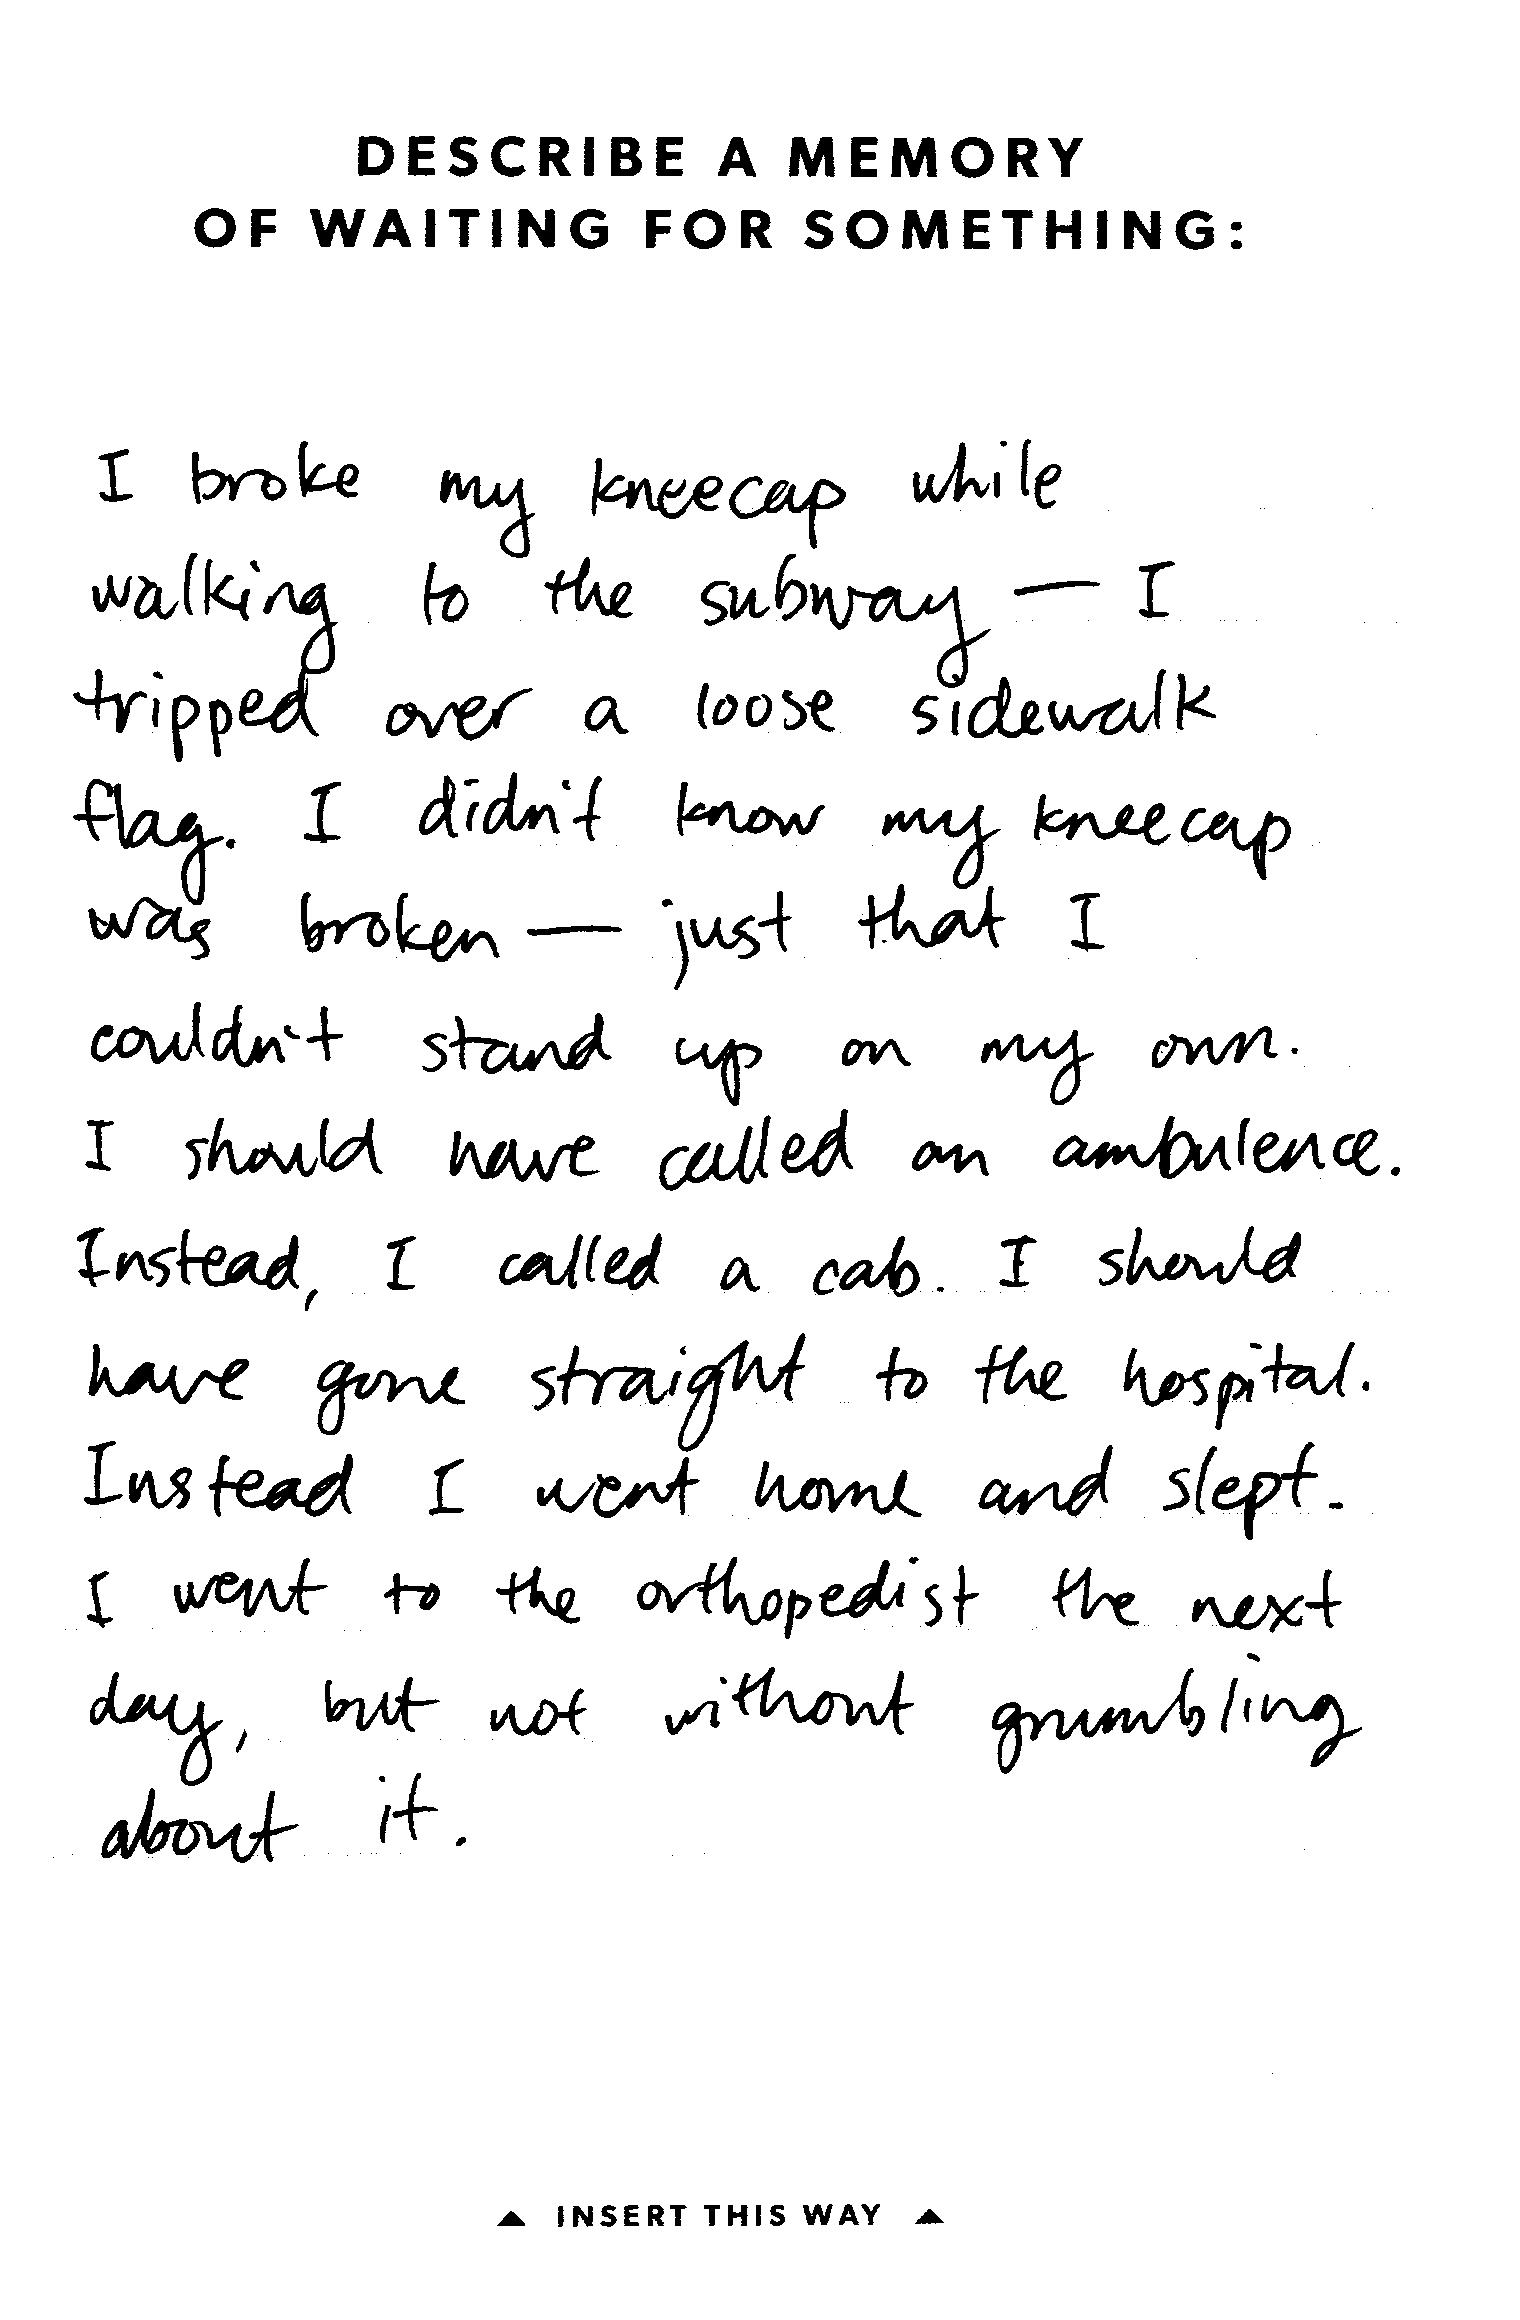 DESCRIBE A MEMORY
OF WAITING FOR SOMETHING:
I broke my kneecap while
walking to the subway — I
tripped over a loose sidewalk
flag. I didn't know my kneecap
was broken — just that I
couldn't stand up on my own.
I should have called an ambulence.
Instead, I called a cab. I should
have gone straight to the hospital.
Instead I went home and slept.
I went to the orthopedist the next
day, but not without grumbling
about it.
▲ INSERT THIS WAY ▲